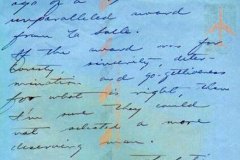 ago of a
unparalleled award
from La Salle.
If the award was for
sincerity, deter-
mination and go-gettiveness
for what is right, then
I'm sure they could
not selected a more
deserving man.